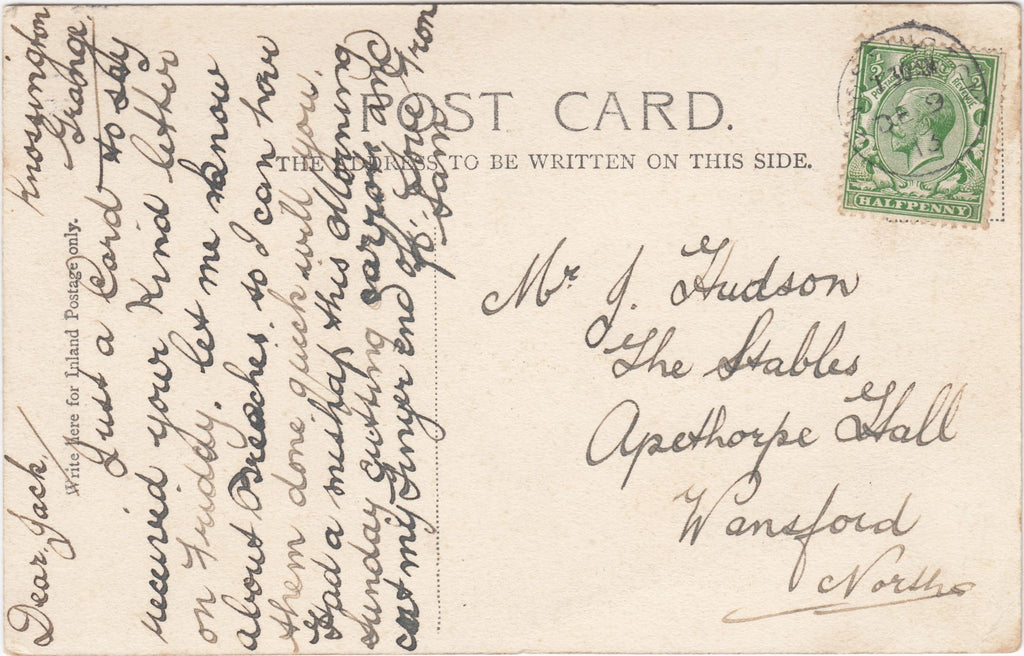 POST CARD.
THE ADDRESS TO BE WRITTEN ON THIS SIDE.
Write Here for Inland Postage only.
Knossington
Grange
Dear Jack,
Just a Card to say
received your Kind letter
on Friday. let me know
about Breaches. so I can have
them done quick will you.
Had a mishap this Morning
Sunday cutting carrots and
cut my finger end off. Love from
Sam
Mr J. Hudson
The Stables
Apethorpe Hall
Wansford
Northa
HALFPENNY
POSTAGE
REVENUE
DE 9
13